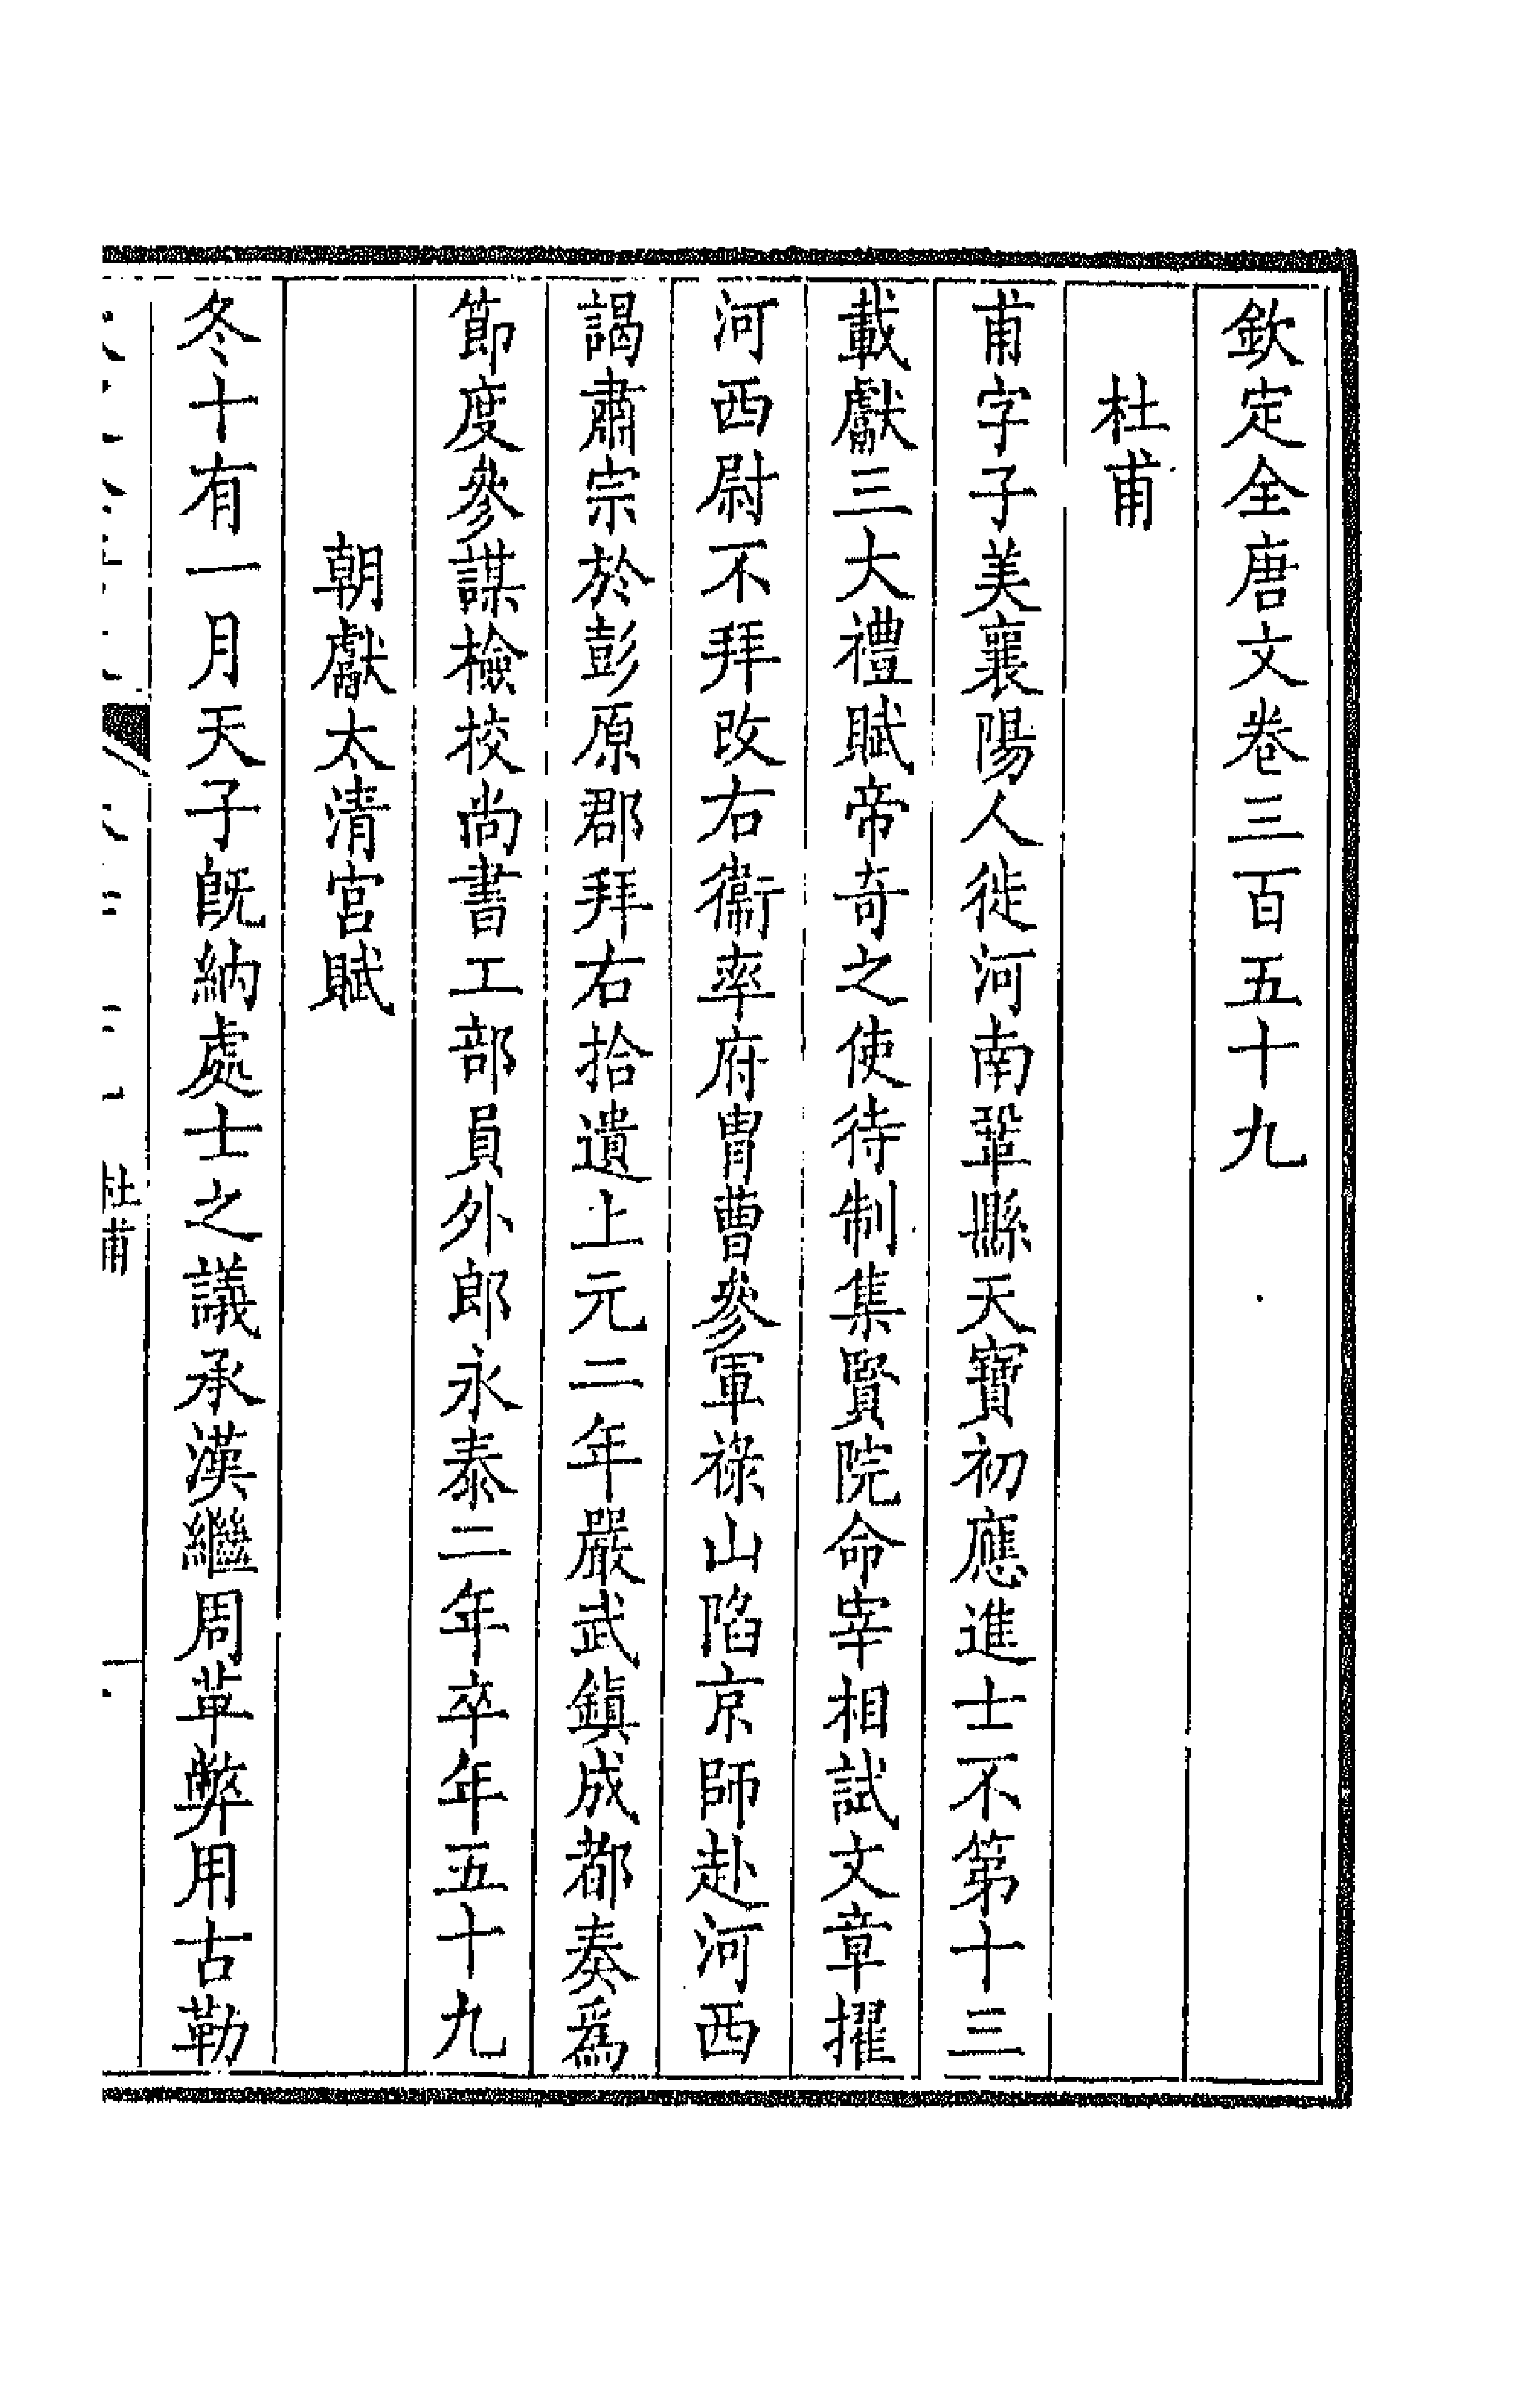 欽定全唐文卷三百五十九
杜甫
甫字子美襄陽人徙河南鞏縣天寶初應進士不第十三
載獻三大禮賦帝奇之使待制集賢院命宰相試文章擢
河西尉不拜改右衞率府胄曹參軍祿山陷京師赴河西
謁肅宗於彭原郡拜右拾遺上元二年嚴武鎮成都奏爲
節度參謀檢校尚書工部員外郎永泰二年卒年五十九
朝獻太清宮賦
冬十有一月天子旣納處士之議承漢繼周革弊用古勒
杜甫